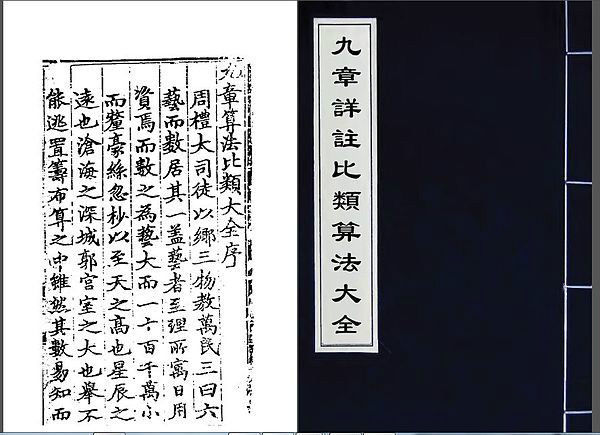 九章詳註比類算法大全
九章算法比類大全序
周禮大司徒以鄉三物教萬民三曰六
藝而數居其一盖藝者至理所寓日用
資焉而數之為藝大而一十百千萬小
而釐豪絲忽杪以至天之髙也星辰之
遠也滄海之深城郭宮室之大也舉不
能逃置籌布算之中雖然其數易知而